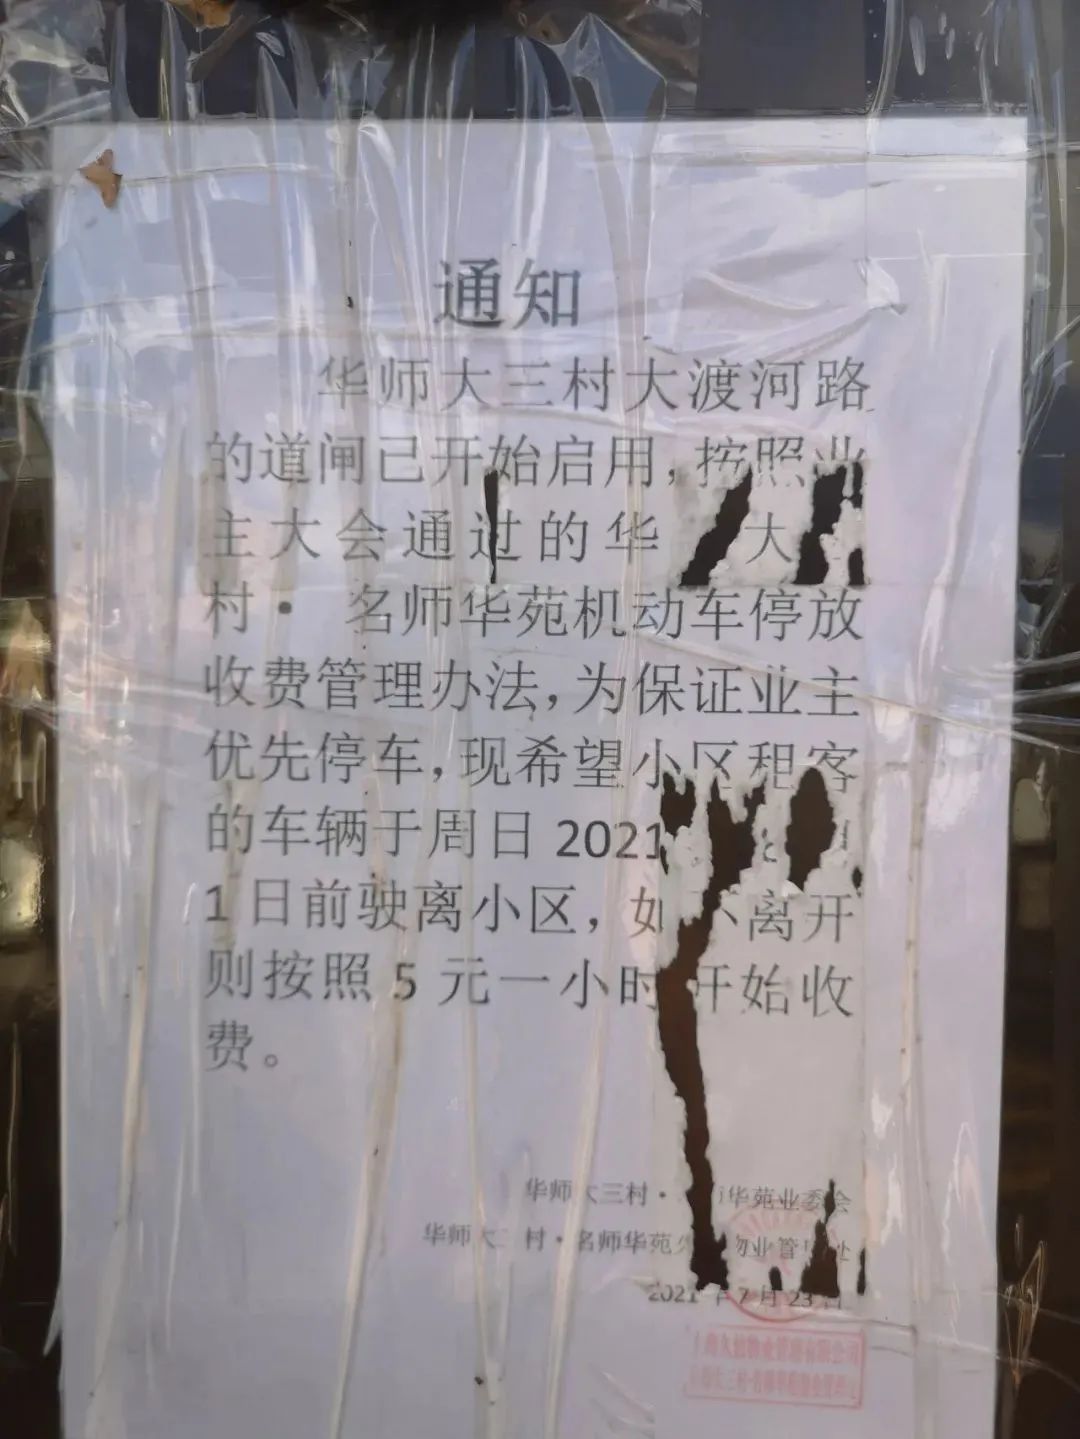 通知
华师大三村大渡河路
的道闸已开始启用，按照业
主大会通过的华 大
村· 名师华苑机动车停放
收费管理办法，为保证业主
优先停车，现希望小区租客
的车辆于周日 2021
1 日前驶离小区，如不离开
则按照 5 元一小时开始收
费。
华师大三村· 师华苑业委会
华师大 村·名师华苑 物业管 处
2021 年 7 月 23 日